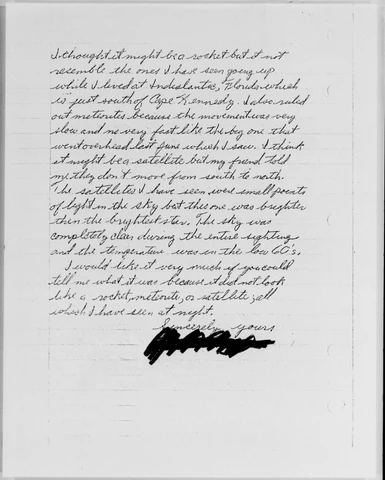 I thought it might be a rocket but it not
resemble the ones I have seen going up
while I lived at Indialantic, Florida which
is just south of Cape Kennedy. I also ruled
out meteorites because the movement was very
slow and no very fast like the big one that
went overhead last June which I saw. I think
it might be a satellite but my friend told
me they don't move from south to north.
The satellites I have seen were small points
of light in the sky but this one was brighter
then the brightest star. The sky was
completely clear during the entire sighting
and the temperature was in the low 60's.
I would like it very much if you could
tell me what it was because it did not look
like a rocket, meteorite, or satellite; all
which I have seen at night.
Sincerely yours